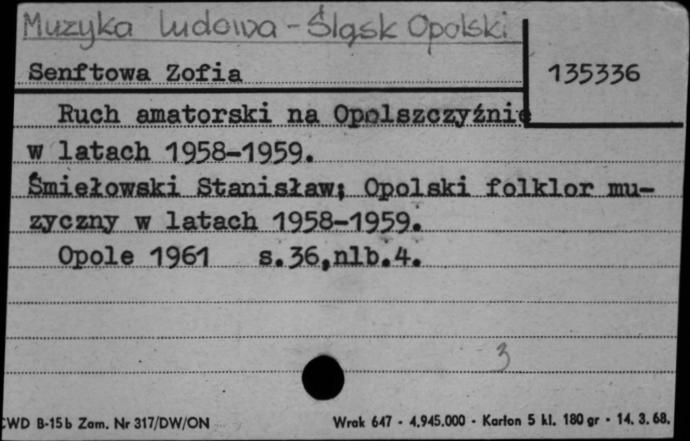 Muzyka ludowa - Śląsk Opolski
Senftowa Zofia
135336
Ruch amatorski na Opolszczyźnie
w latach 1958-1959.
Śmiełowski Stanisław; Opolski folklor mu-
zyczny w latach 1958-1959.
Opole 1961 s.36,nlb.4.
3
CWD B-15b Zam. Nr 317/DW/ON
Wrak 647 - 4.945.000 - Karton 5 kl. 180 gr - 14. 3. 68.